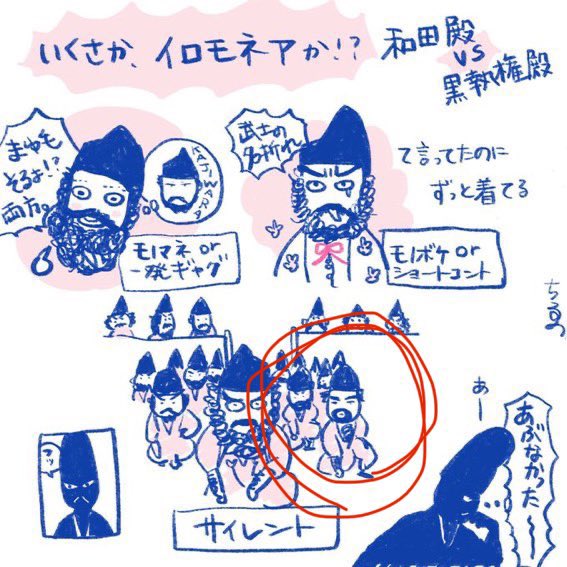 いくさか、イロモネアか!?
和田殿
VS
黒執権殿
まゆ毛
そるよ!?
両方。
KAJIWARA
モノマネ or
一発ギャグ
武士の
名折れ
て言ってたのに
ずっと着てる
モノボケ or
ショートコント
サイレント
あぶなかった〜
あー